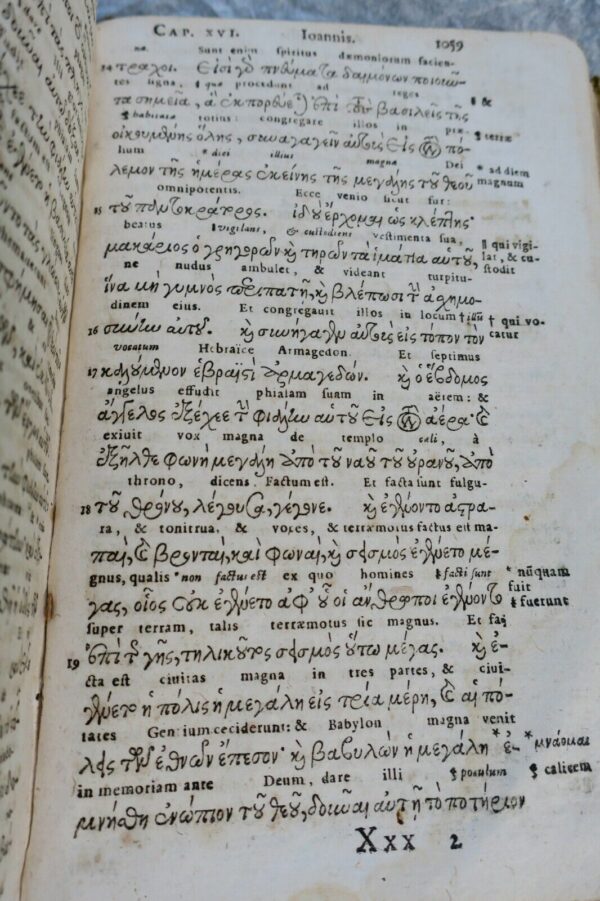 CAP. XVI. Ioannis. 1059
ne. Sunt enim spiritus dæmoniorum facien-
14 τραχοι. Εἰσὶ γὰρ πνεύματα δαιμόνων ποιοῦν-
tes signa, ¶ quæ procedunt ad reges ¶ &
τα σημεῖα, ἃ ἐκπορεύεται ἐπὶ τοὺς βασιλεῖς τῆς
¶ habitatæ totius: congregare illos in præ- ¶ terræ
οἰκουμένης ὅλης, συναγαγεῖν αὐτοὺς εἰς τὸν πό-
lium * diei illius magna Dei * ad diem
λεμον τῆς ἡμέρας ἐκείνης τῆς μεγάλης τοῦ θεοῦ magnum
omnipotentis. Ecce venio sicut fur:
15 τοῦ παντοκράτορος. ἰδοὺ ἔρχομαι ὡς κλέπτης·
beatus ¶ vigilans, & custodiens vestimenta sua, ¶ qui vigi-
μακάριος ὁ γρηγορῶν καὶ τηρῶν τὰ ἱμάτια αὐτοῦ, lat, & cu-
ne nudus ambulet, & videant turpitu- stodit
ἵνα μὴ γυμνὸς περιπατῇ, καὶ βλέπωσι τὴν ἀσχημο-
dinem eius. Et congregauit illos in locum † qui vo-
16 σύνην αὐτοῦ. καὶ συνήγαγεν αὐτοὺς εἰς τόπον τὸν catur
vocatum Hebraice Armagedon. Et septimus
17 καλούμενον ἑβραϊστὶ Ἀρμαγεδών. καὶ ὁ ἕβδομος
angelus effudit phialam suam in aërem: &
ἄγγελος ἐξέχεε τὴν φιάλην αὑτοῦ εἰς τὸν ἀέρα· καὶ
exiuit vox magna de templo cæli, à
ἐξῆλθε φωνὴ μεγάλη ἀπὸ τοῦ ναοῦ τοῦ οὐρανοῦ, ἀπὸ
throno, dicens, Factum est. Et facta sunt fulgu-
18 τοῦ θρόνου, λέγουσα, γέγονε. καὶ ἐγένοντο ἀστρα-
ra, & tonitrua, & voces, & terræmotus factus est ma-
παὶ, καὶ βρονταὶ, καὶ φωναὶ, καὶ σεισμὸς ἐγένετο μέ-
gnus, qualis * non factus est ex quo homines ¶ facti sunt * nũquam
γας, οἷος οὐκ ἐγένετο ἀφ' οὗ οἱ ἄνθρωποι ἐγένοντο fuit
super terram, talis terræmotus sic magnus. Et fa- ¶ fuerunt
19 ἐπὶ τῆς γῆς, τηλικοῦτος σεισμὸς οὕτω μέγας. καὶ ἐ-
cta est ciuitas magna in tres partes, & ciui-
γένετο ἡ πόλις ἡ μεγάλη εἰς τρία μέρη, καὶ αἱ πό-
tates Gentium ceciderunt: & Babylon magna venit
λεις τῶν ἐθνῶν ἔπεσον· καὶ βαβυλὼν ἡ μεγάλη * ἐ- * μνάομαι
in memoriam ante Deum, dare illi ¶ poculum ¶ calicem
μνήσθη ἐνώπιον τοῦ θεοῦ, δοῦναι αὐτῇ τὸ ποτήριον
Xxx 2